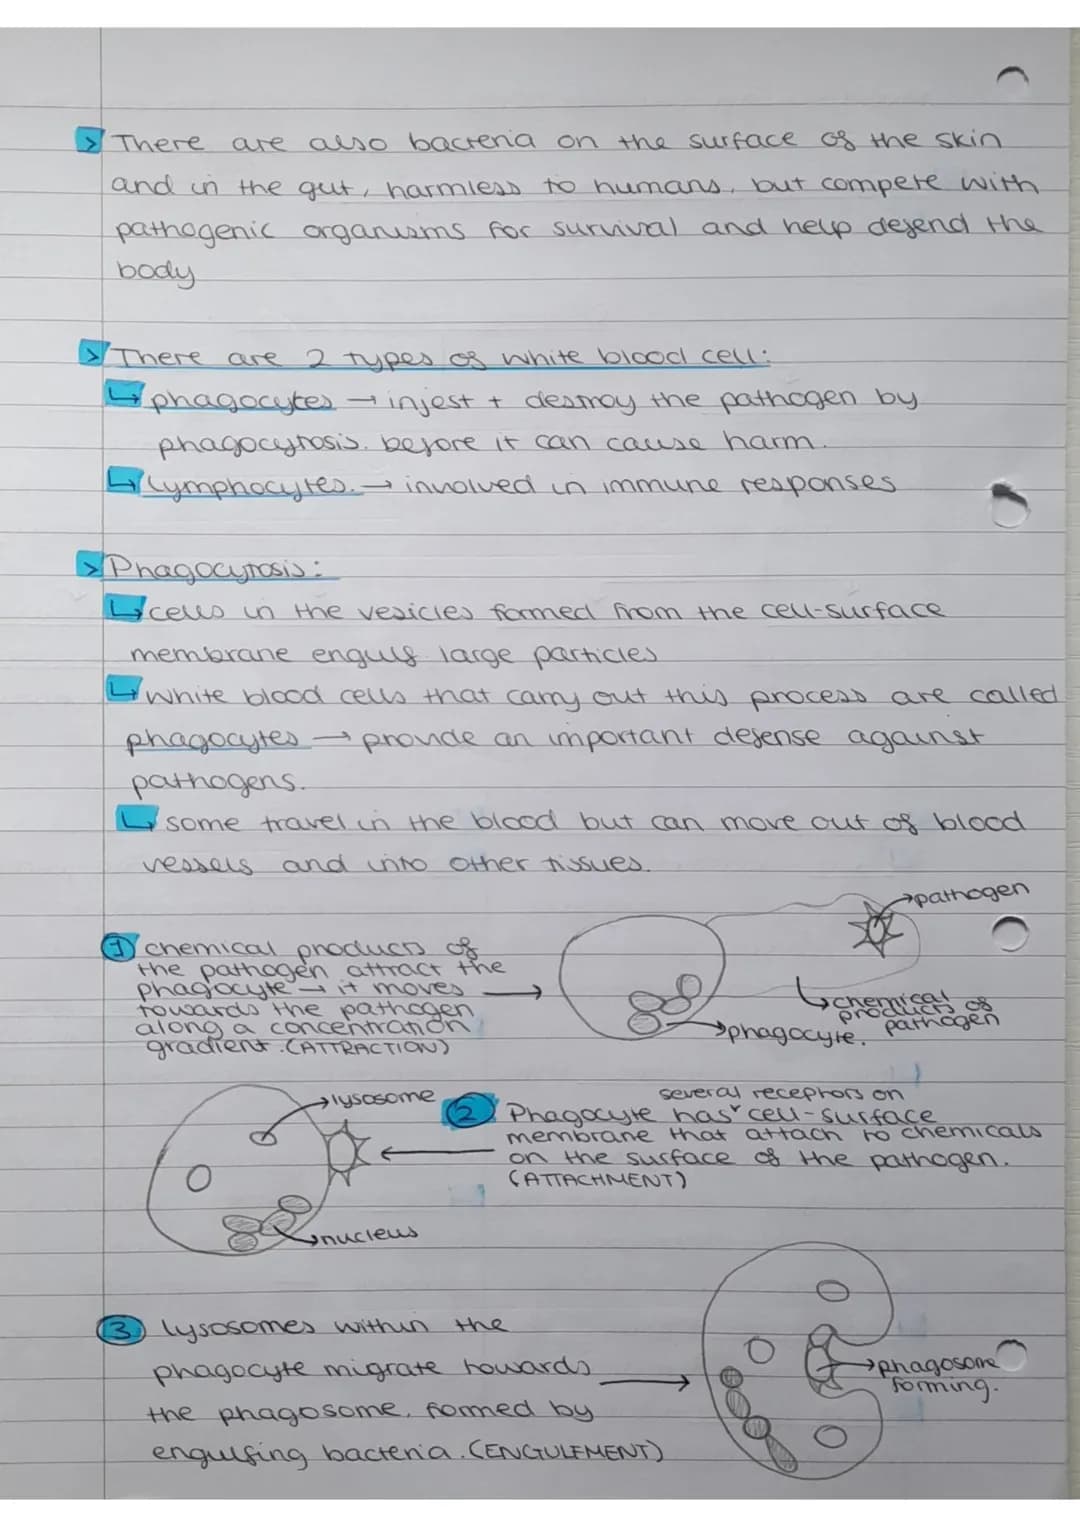 > There are also bacteria on the surface of the skin
and in the gut, harmless to humans, but compete with
pathogenic organisms for survival and help defend the
body
> There are 2 types of white blood cell:
↳ phagocytes → injest + destroy the pathogen by
phagocytosis. before it can cause harm.
↳ lymphocytes. → involved in immune responses
> Phagocytosis:
↳ cells in the vesicles formed from the cell-surface
membrane engulf large particles
↳ white blood cells that carry out this process are called
phagocytes → provide an important defense against
pathogens.
↳ some travel in the blood but can move out of blood
vessels and into other tissues.
→ pathogen
① chemical products of
the pathogen attract the
phagocyte → it moves
towards the pathogen
along a concentration
gradient. (ATTRACTION)
↳ chemical
products of
pathogen
→ phagocyte.
→ lysosome
→ nucleus
several receptors on
② Phagocyte has ˅ cell-surface
membrane that attach to chemicals
on the surface of the pathogen.
(ATTACHMENT)
③ lysosomes within the
phagocyte migrate towards
the phagosome, formed by
engulfing bacteria. (ENGULFMENT)
→ phagosome
forming.